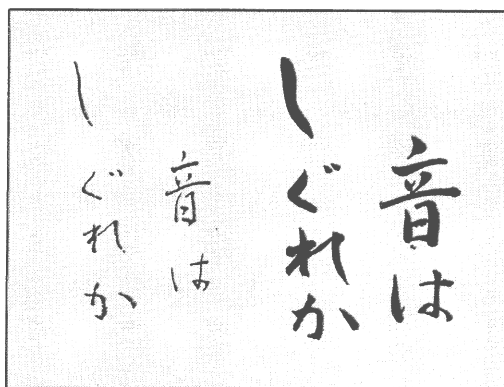 音は
しぐれか
音は
しぐれか